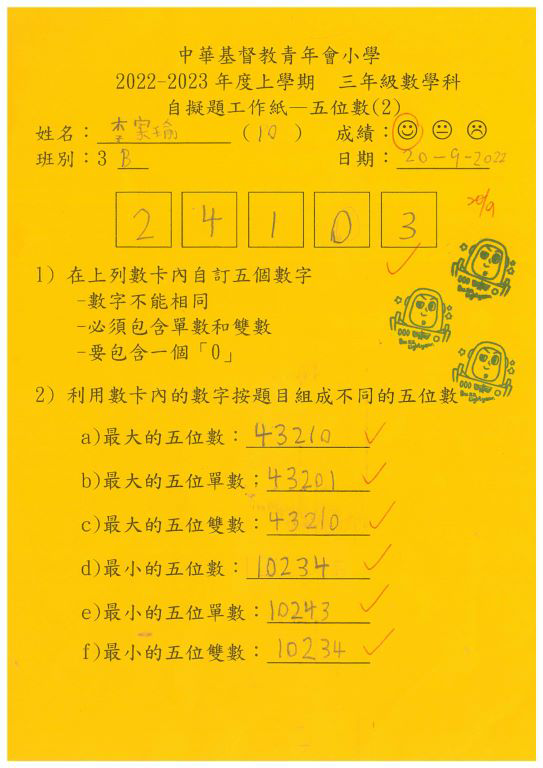 中華基督教青年會小學
2022-2023 年度上學期 三年級數學科
自擬題工作紙—五位數(2)
姓名：李家瑜 (10) 成績：
班別：3 B 日期：20-9-2022
20/9
2 4 1 0 3
1) 在上列數卡內自訂五個數字
-數字不能相同
-必須包含單數和雙數
-要包含一個「0」
2) 利用數卡內的數字按題目組成不同的五位數
a)最大的五位數：43210
b)最大的五位單數；43201
c)最大的五位雙數：43210
d)最小的五位數：10234
e)最小的五位單數：10243
f)最小的五位雙數：10234